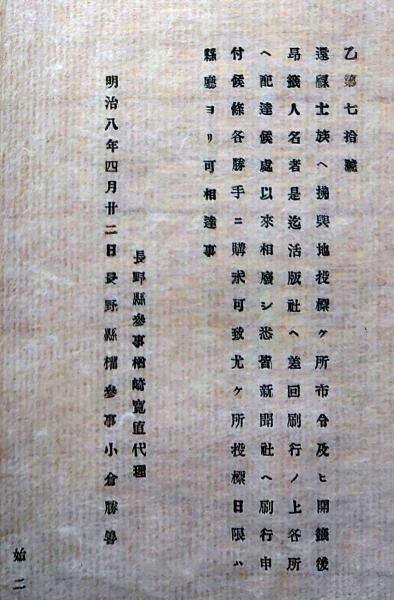 乙第七拾號
還祿士族ヘ拂與地投標ケ所市令及ヒ開籤後
昂籤人名者是迄活版社ヘ差回刷行ノ上各所
ヘ配達候處以來相廢シ悉皆新聞社ヘ刷行申
付候條各勝手ニ購求可致尤ケ所投標日限ハ
縣廳ヨリ可相達事
長野縣參事楢崎寛直代理
明治八年四月廿二日長野縣權參事小倉勝善
二